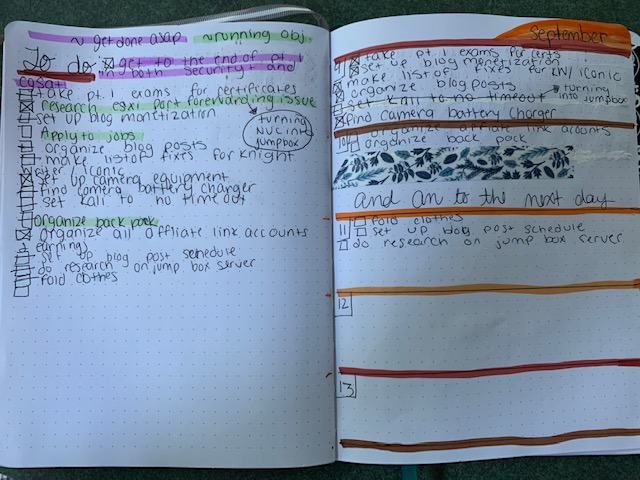 ~ get done asap ~running obj
To do get to the end of pt 1
in both security+ and
cysa+
take pt. 1 exams for certificates
research esxi port forewarding issue
set up blog monetization
turning
NUC into
jumpbox
Apply to jobs
organize blog posts
make list of fixes for Knight
iconic
set up camera equipment
find camera battery charger
set kali to no time out
organize back pack
organize all affiliate link accounts
earnings
set up blog post schedule
do research on jump box server
fold clothes
September
take pt. 1 exams for certs
set up blog monetization
make list of fixes for KN/ iconic
organize blog posts
turning
into jumpbox
set kali to no timeout
find camera battery charger
10 organize affiliate link acounts
organize back pack
and on to the next day
11 fold clothes
set up blog post schedule
do research on jump box server
12
13